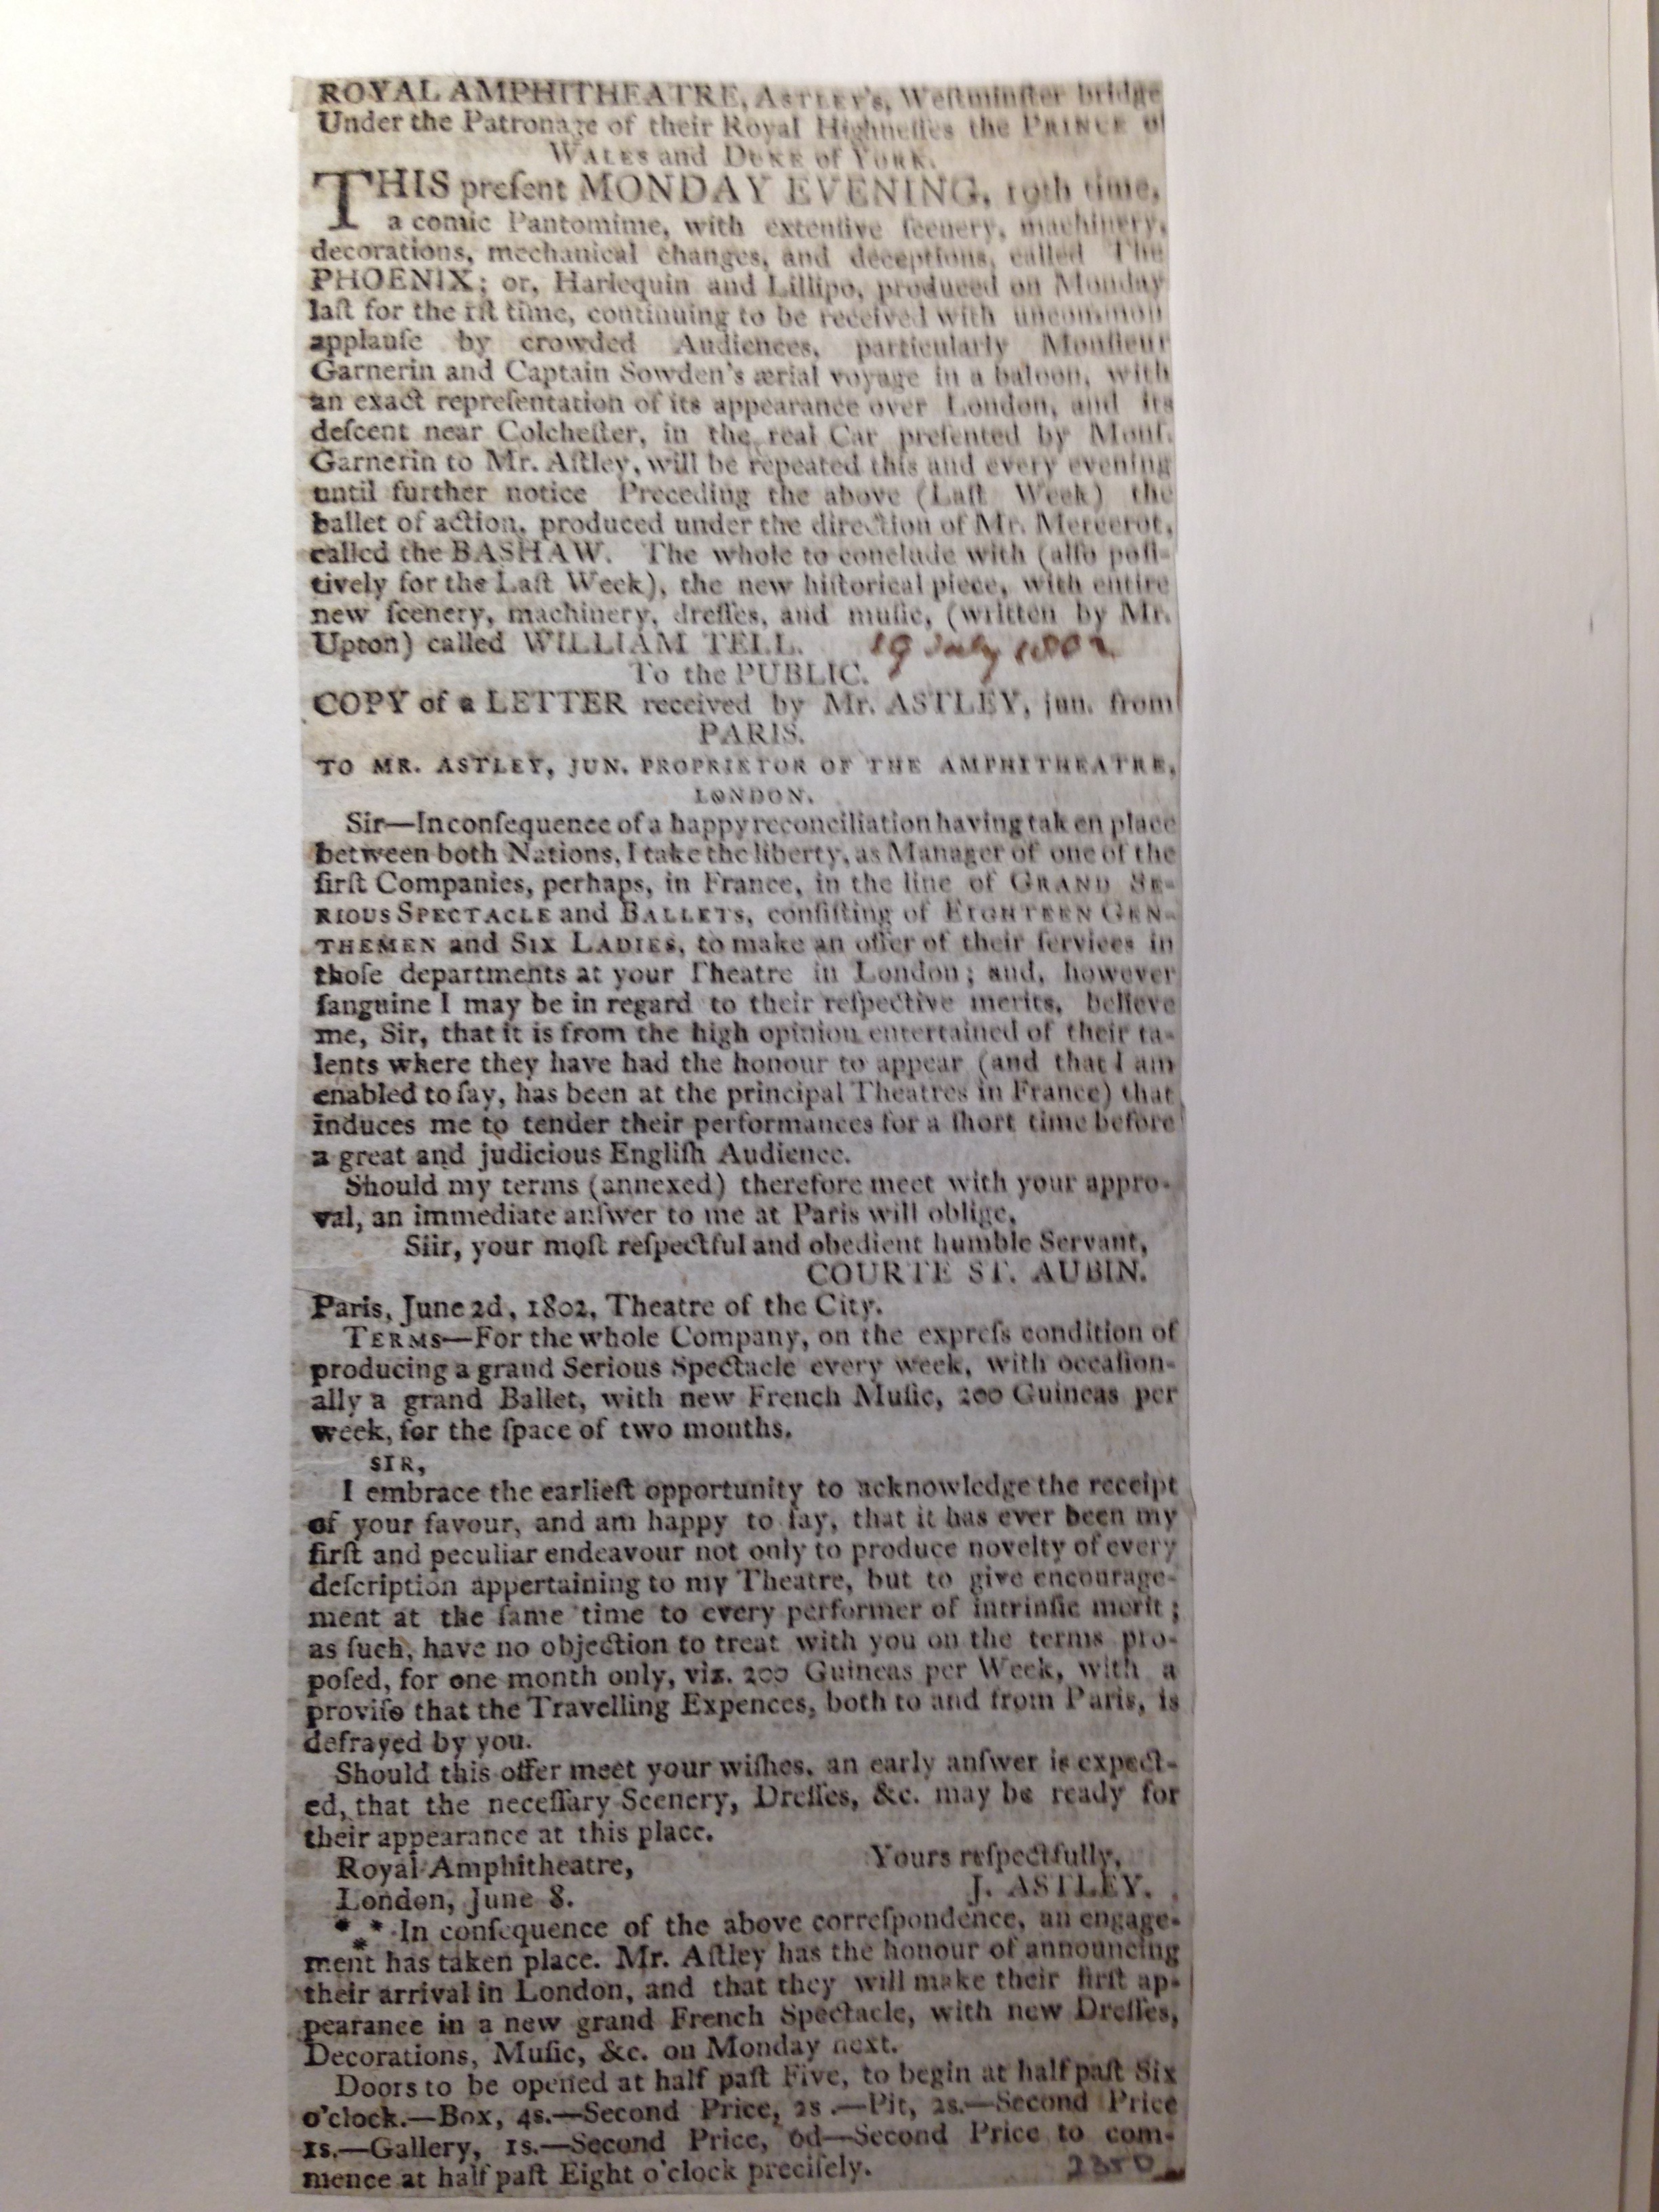 ROYAL AMPHITHEATRE, ASTLEY's, Weſtminſter bridge
Under the Patronage of their Royal Highneſſes the PRINCE o
WALES and DUKE of YORK.
THIS preſent MONDAY EVENING, 19th time,
a comic Pantomime, with extenſive ſcenery, machinery,
decorations, mechanical changes, and deceptions, called The
PHOENIX; or, Harlequin and Lillipo, produced on Monday
laſt for the 1ſt time, continuing to be received with uncommon
applauſe by crowded Audiences, particularly Monſieur
Garnerin and Captain Sowden's ærial voyage in a baloon, with
an exact repreſentation of its appearance over London, and its
deſcent near Colcheſter, in the real Car preſented by Monſ.
Garnerin to Mr. Aſtley, will be repeated this and every evening
until further notice Preceding the above (Laſt Week) the
ballet of action, produced under the direction of Mr. Mercerot,
called the BASHAW. The whole to conclude with (alſo poſi-
tively for the Laſt Week), the new hiſtorical piece, with entire
new ſcenery, machinery, dreſſes, and muſic, (written by Mr.
Upton) called WILLIAM TELL. 19 July 1802
To the PUBLIC.
COPY of a LETTER received by Mr. ASTLEY, jun. from
PARIS.
TO MR. ASTLEY, JUN. PROPRIETOR OF THE AMPHITHEATRE,
LONDON.
Sir—In conſequence of a happy reconciliation having tak en place
between both Nations, I take the liberty, as Manager of one of the
firſt Companies, perhaps, in France, in the line of GRAND SE-
RIOUS SPECTACLE and BALLETS, conſiſting of EIGHTEEN GEN-
THEMEN and SIX LADIES, to make an offer of their ſervices in
thoſe departments at your Theatre in London; and, however
ſanguine I may be in regard to their reſpective merits, believe
me, Sir, that it is from the high opinion entertained of their ta-
lents where they have had the honour to appear (and that I am
enabled to ſay, has been at the principal Theatres in France) that
induces me to tender their performances for a ſhort time before
a great and judicious Engliſh Audience.
Should my terms (annexed) therefore meet with your appro-
val, an immediate anſwer to me at Paris will oblige,
Siir, your moſt reſpectful and obedient humble Servant,
COURTE ST. AUBIN.
Paris, June 2d, 1802, Theatre of the City.
TERMS—For the whole Company, on the expreſs condition of
producing a grand Serious Spectacle every week, with occaſion-
ally a grand Ballet, with new French Muſic, 200 Guineas per
week, for the ſpace of two months.
SIR,
I embrace the earlieſt opportunity to acknowledge the receipt
of your favour, and am happy to ſay, that it has ever been my
firſt and peculiar endeavour not only to produce novelty of every
deſcription appertaining to my Theatre, but to give encourage-
ment at the ſame time to every performer of intrinſic merit;
as ſuch, have no objection to treat with you on the terms pro-
poſed, for one month only, viz. 200 Guineas per Week, with a
proviſo that the Travelling Expences, both to and from Paris, is
defrayed by you.
Should this offer meet your wiſhes, an early anſwer is expect-
ed, that the neceſſary Scenery, Dreſſes, &c. may be ready for
their appearance at this place.
Royal Amphitheatre, Yours reſpectfully,
London, June 8. J. ASTLEY.
*** In conſequence of the above correſpondence, an engage-
ment has taken place. Mr. Aſtley has the honour of announcing
their arrival in London, and that they will make their firſt ap-
pearance in a new grand French Spectacle, with new Dreſſes,
Decorations, Muſic, &c. on Monday next.
Doors to be opened at half paſt Five, to begin at half paſt Six
o'clock.—Box, 4s.—Second Price, 2s.—Pit, 2s.—Second Price
1s.—Gallery, 1s.—Second Price, 6d—Second Price to com-
mence at half paſt Eight o'clock preciſely.